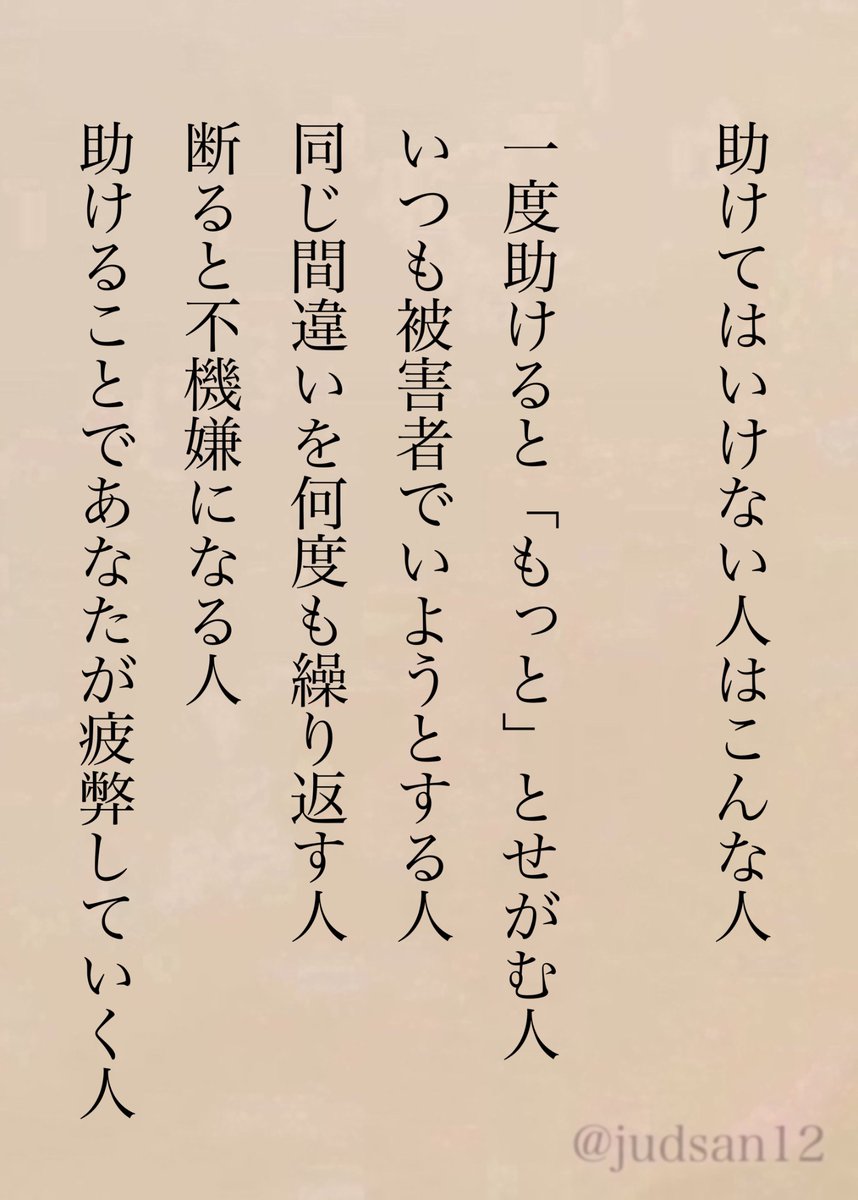 助けてはいけない人はこんな人
一度助けると「もっと」とせがむ人
いつも被害者でいようとする人
同じ間違いを何度も繰り返す人
断ると不機嫌になる人
助けることであなたが疲弊していく人
@judsan12